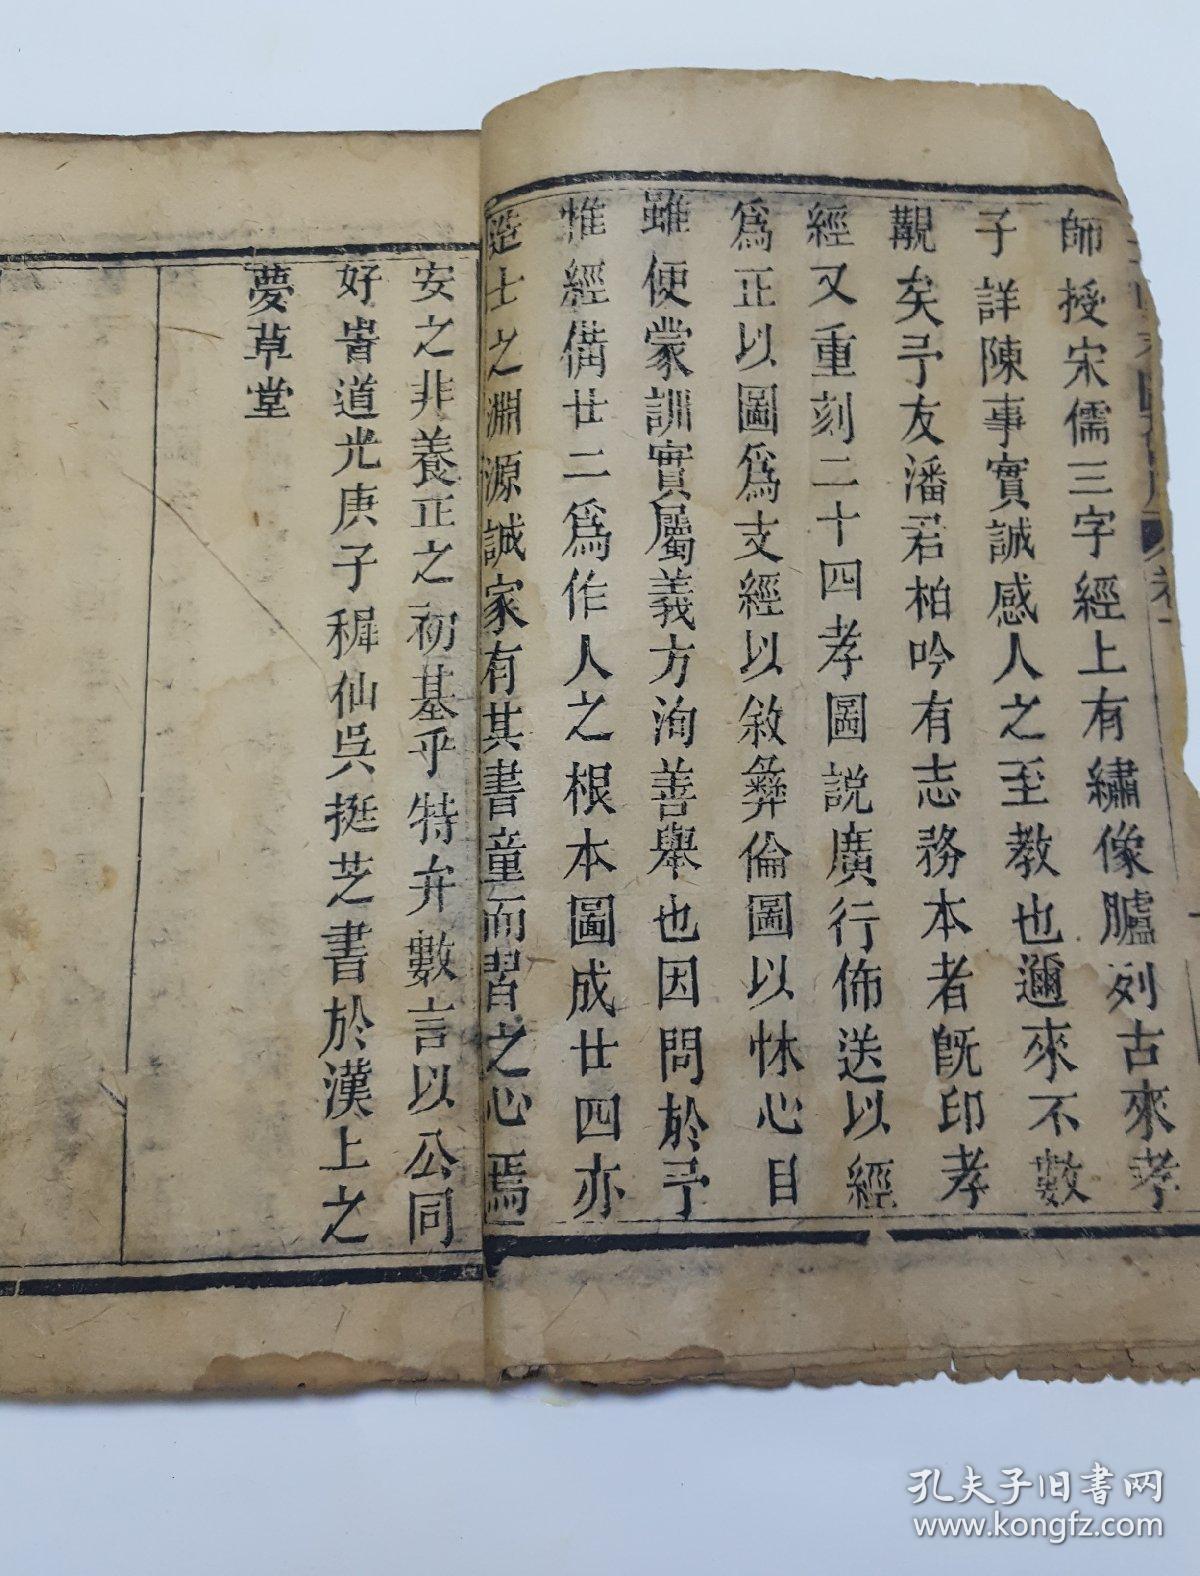 師授宋儒三字經上有繡像臚列古來孝
子詳陳事實誠感人之至教也邇來不數
覯矣予友潘君柏吟有志務本者既印孝
經又重刻二十四孝圖説廣行佈送以經
為正以圖為支經以敘彝倫圖以怵心目
雖便蒙訓實屬義方洵善舉也因問於予
惟經備廿二為作人之根本圖成廿四亦
造士之淵源誠家有其書童而習之心焉
安之非養正之初基乎特弁數言以公同
好旹道光庚子穉仙吳挺芝書於漢上之
夢草堂
孔夫子旧书网
www.kongfz.com